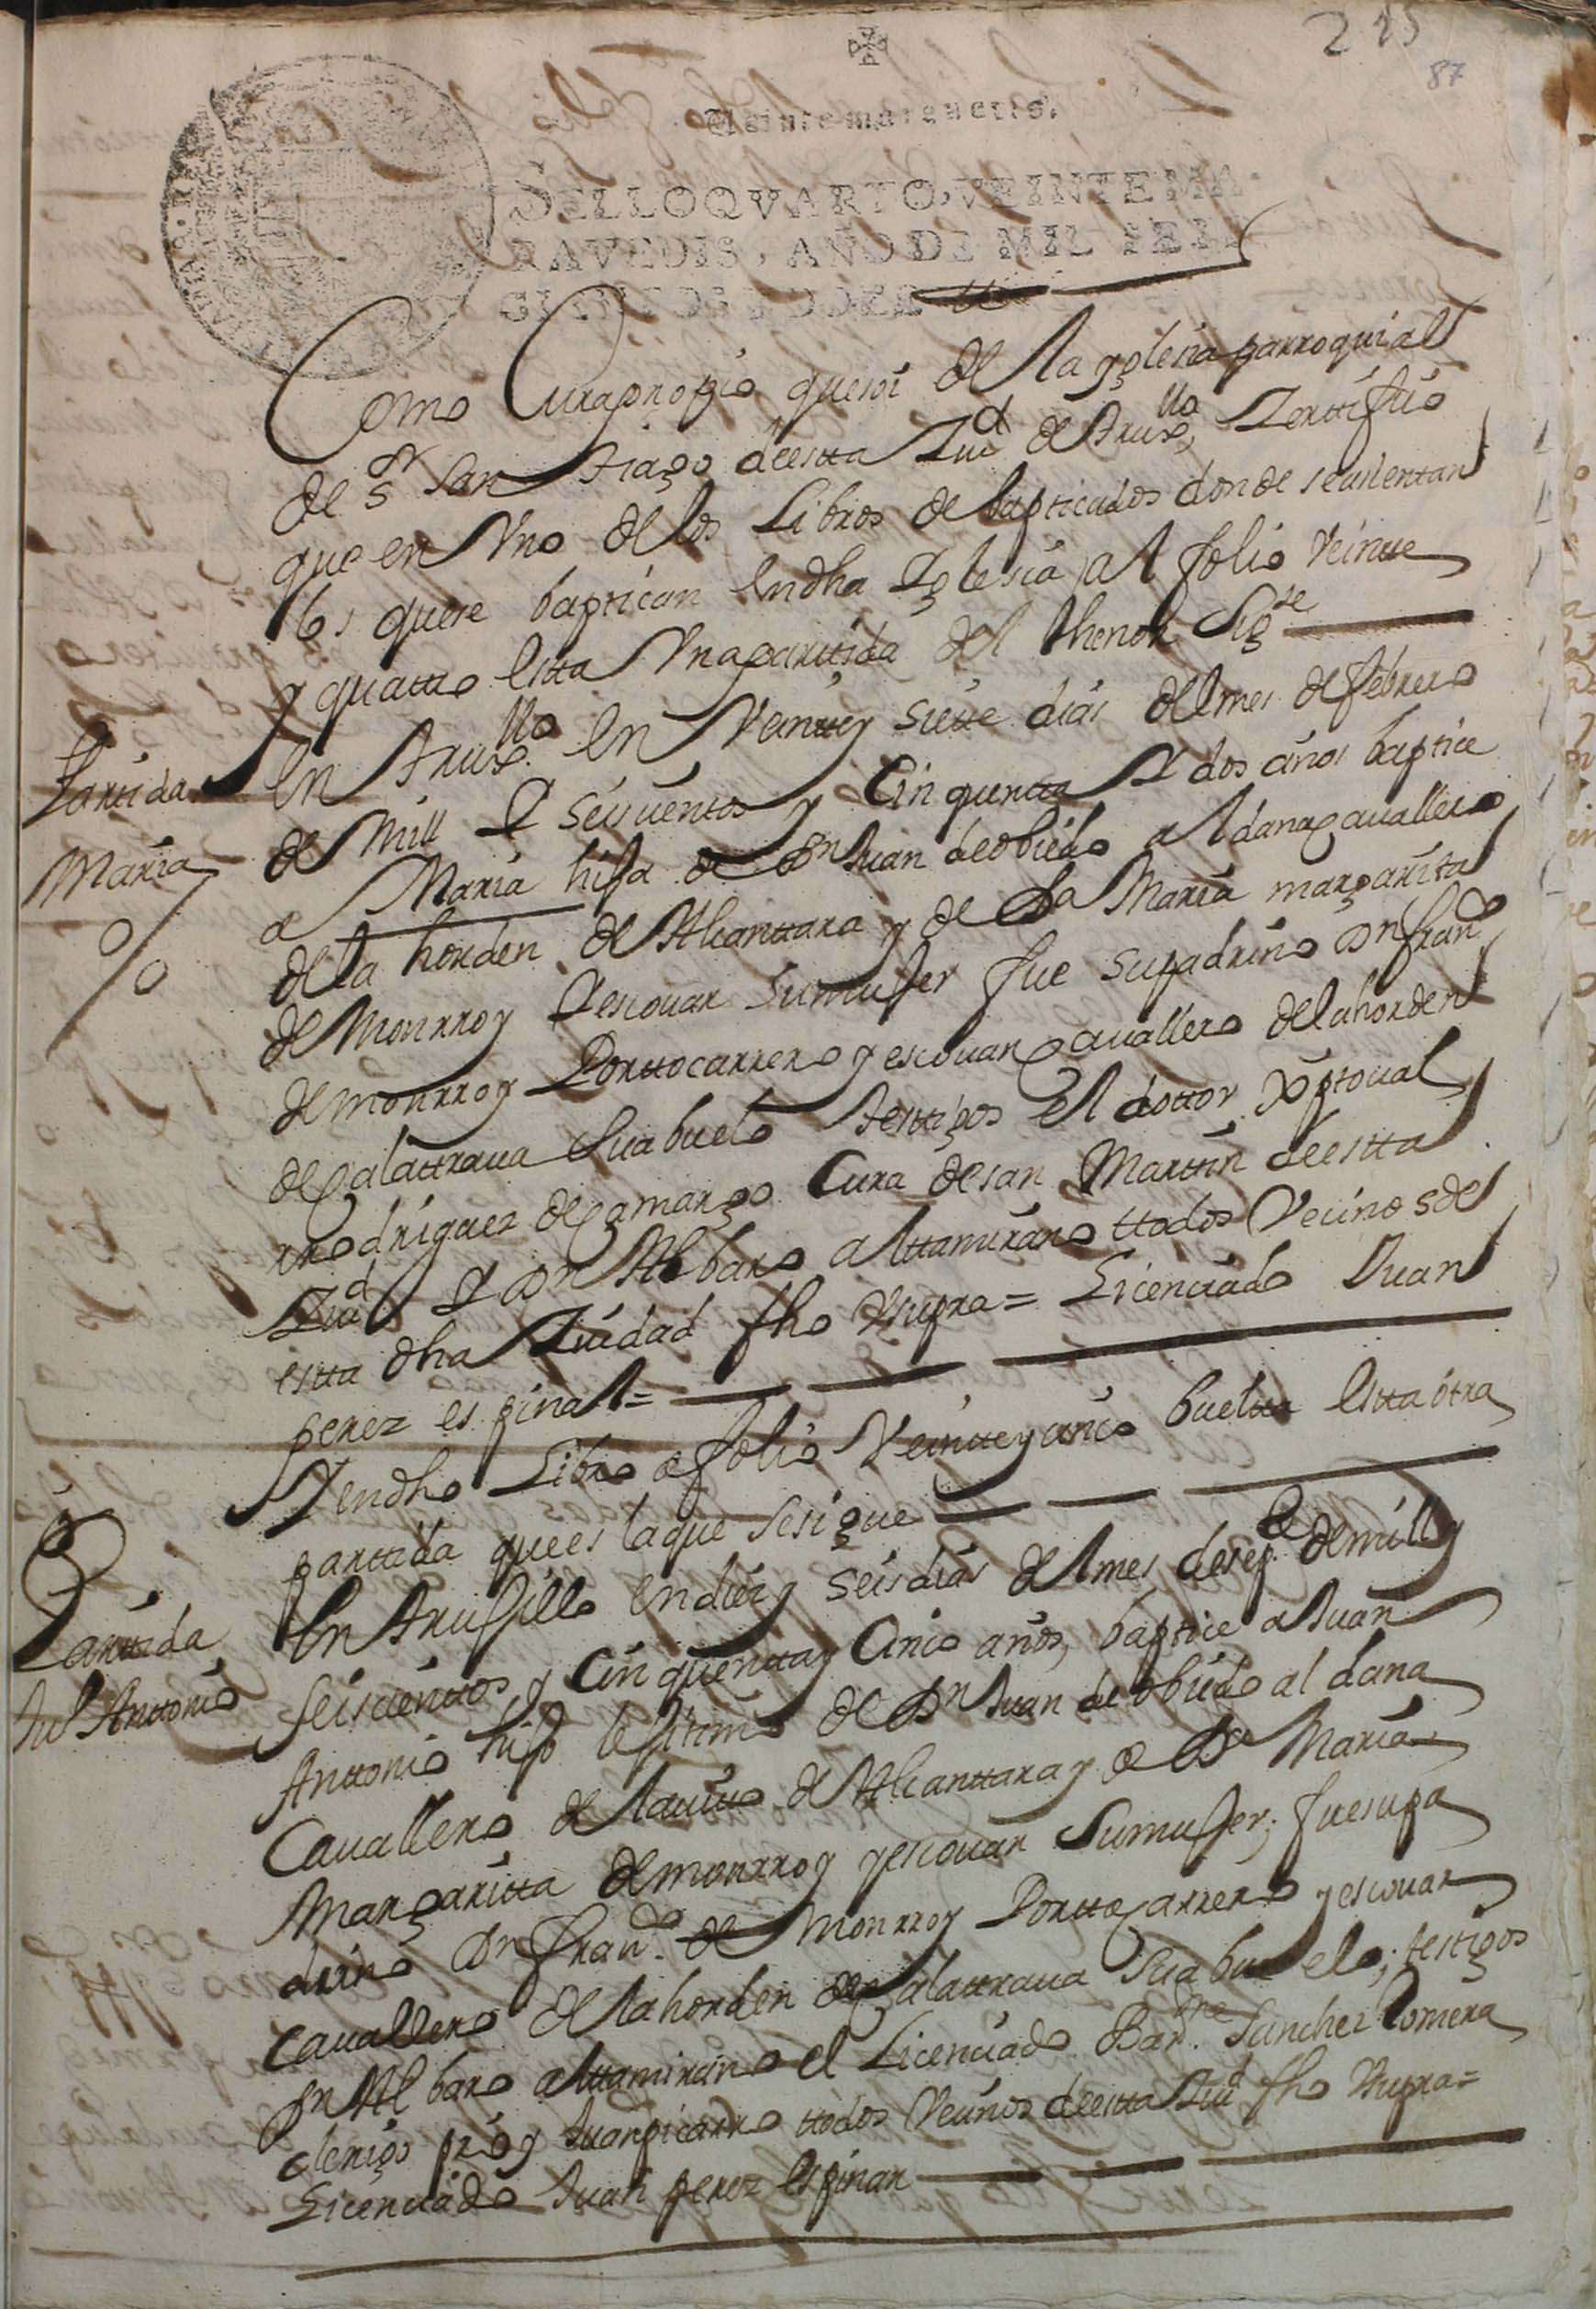 215
87
Veinte maravedis.
SELLO QVARTO, VEINTE MA-
RAVEDIS, AÑO DE MIL SETE
CIENTOS Y DOZE
Como Curapropio quesoi de la yglesia parroquial
de sr san tiago deestta Ziud de truxllo Zerttifico
que en Vno de los Libros de bapticados donde seasientan
los quese baptican en dha Iglesia al folio Veintte
y quattro estta Vna parttida del thenor sigte
Parttida
Maria
En truxllo en Veintte y siette dias del mes de febrero
de mill Y seiscientos y Cinquenta Y dos años baptice
a Maria hija de Dn Juan deobiedo aldana cauallero
de la horden de Alcanttara y de Da Maria margarita
de Monrroy Yescouar Sumujer fue supadrino Dn franco
de monrroy Porttocarrero y escouar cauallero delahorden
de Calattraua Suabuelo testtigos El dottor Xptoual
rrodriguez de Camargo Cura desan Marttin deestta
Ziud Y Dn Albaro alttamirano ttodos Vecinos de
estta dha Ziudad fho Vtsupra = Licenciado Juan
perez espinar =
Yendho Libro a folio Veintteycinco buelta estta otra
parttida quees laque sesigue
Parttida
Jul Anttonio
En trujillo en diez y seis dias del mes de sepe de mill y
seiscientos y Cinquentta y Cinco años, baptice a Juan
Anttonio hijo lejitimo de Dn Juan de obiedo aldana
Cauallero de lauitto de Alcanttara y de Da Maria
Margaritta de monrroy yescouar Sumujer; fuesupa
drino Dn franco de Monrroy Porttocarrero y escouar
Cauallero de la horden de Calattraua Suabuelo; testigos
Dn Albaro alttamirano el Licenciado Barme Sanchez Romera
clerigo pro y Juan picarro ttodos Vecinos deestta Ziud fho Vtsupra =
Licenciado Juan perez espinar